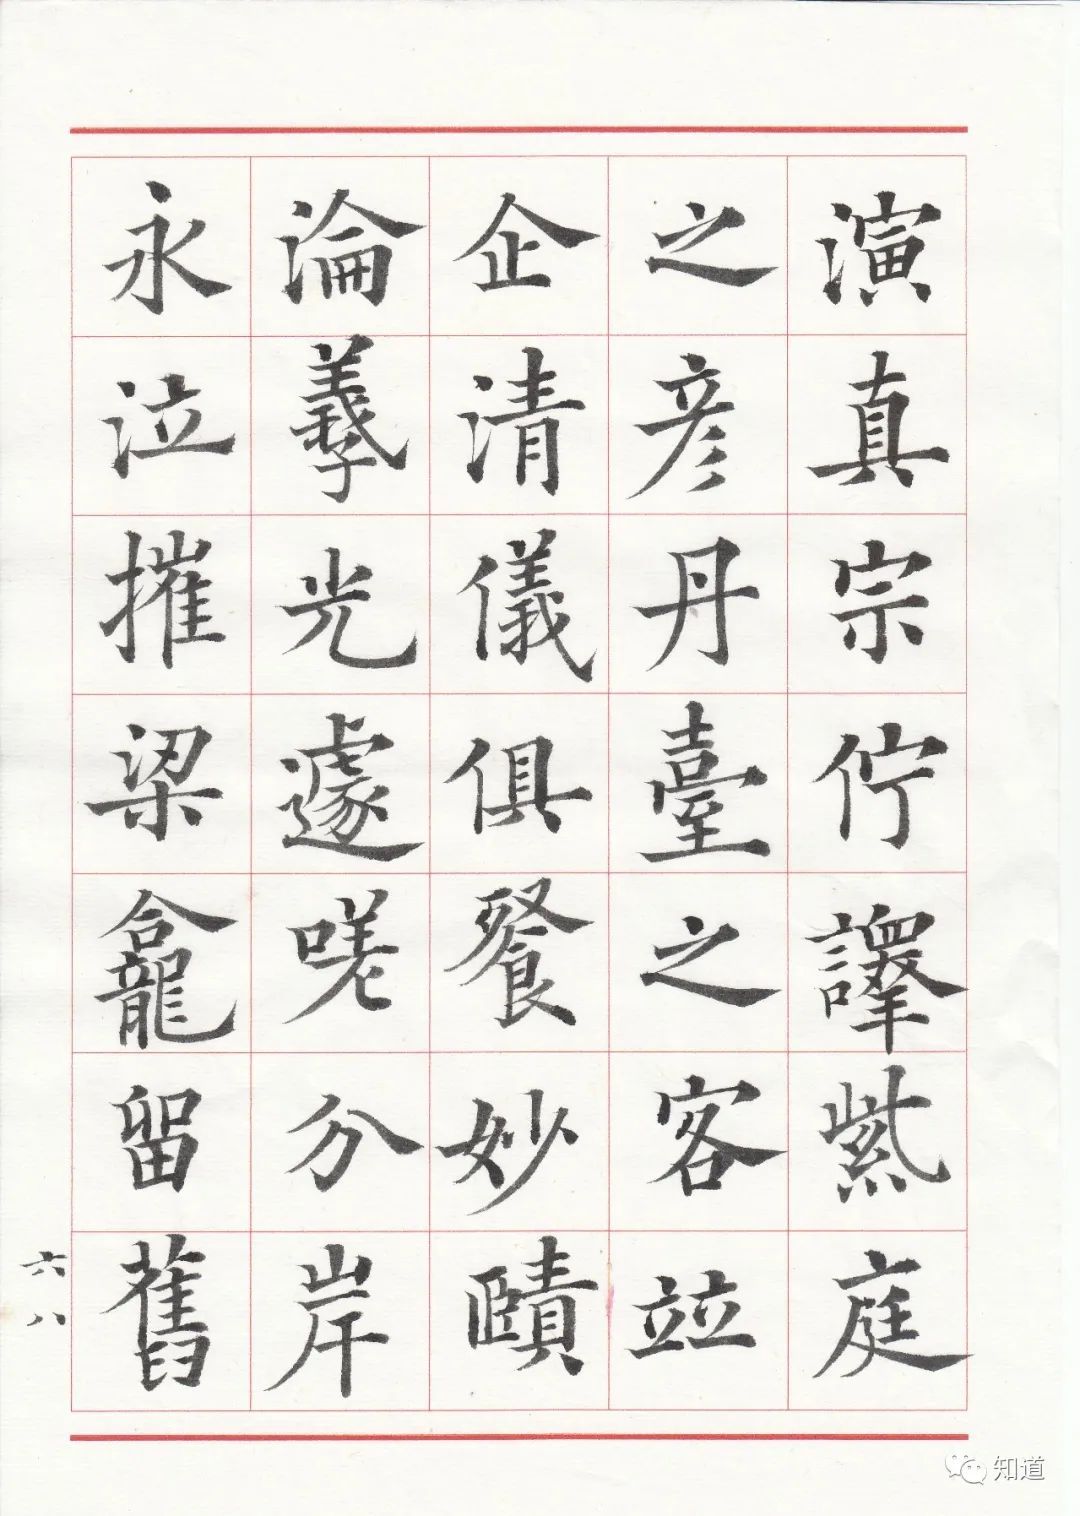 演真宗佇紫庭
之彥丹臺之客並
企清儀俱餐妙賾
淪羲光遽嗟分岸
永泣摧梁龕留舊
六八
知道